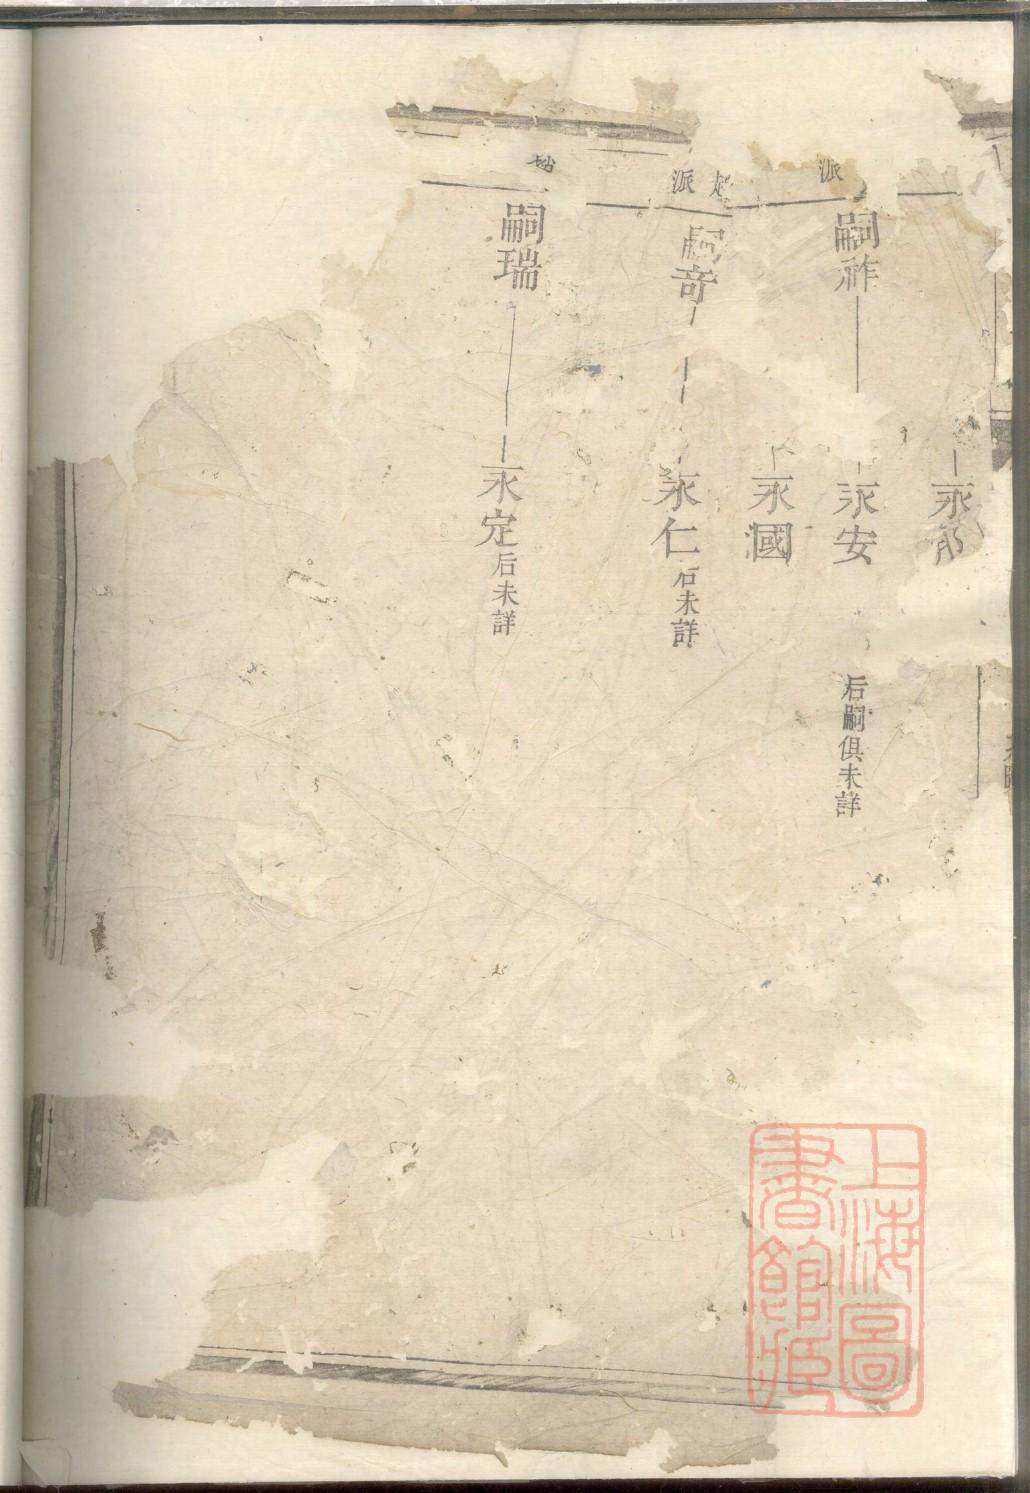 永
派
嗣祚
永安
后嗣俱未詳
永國
派
嗣奇
永仁
后未詳
嗣瑞
永定
后未詳
上海圖
書館藏